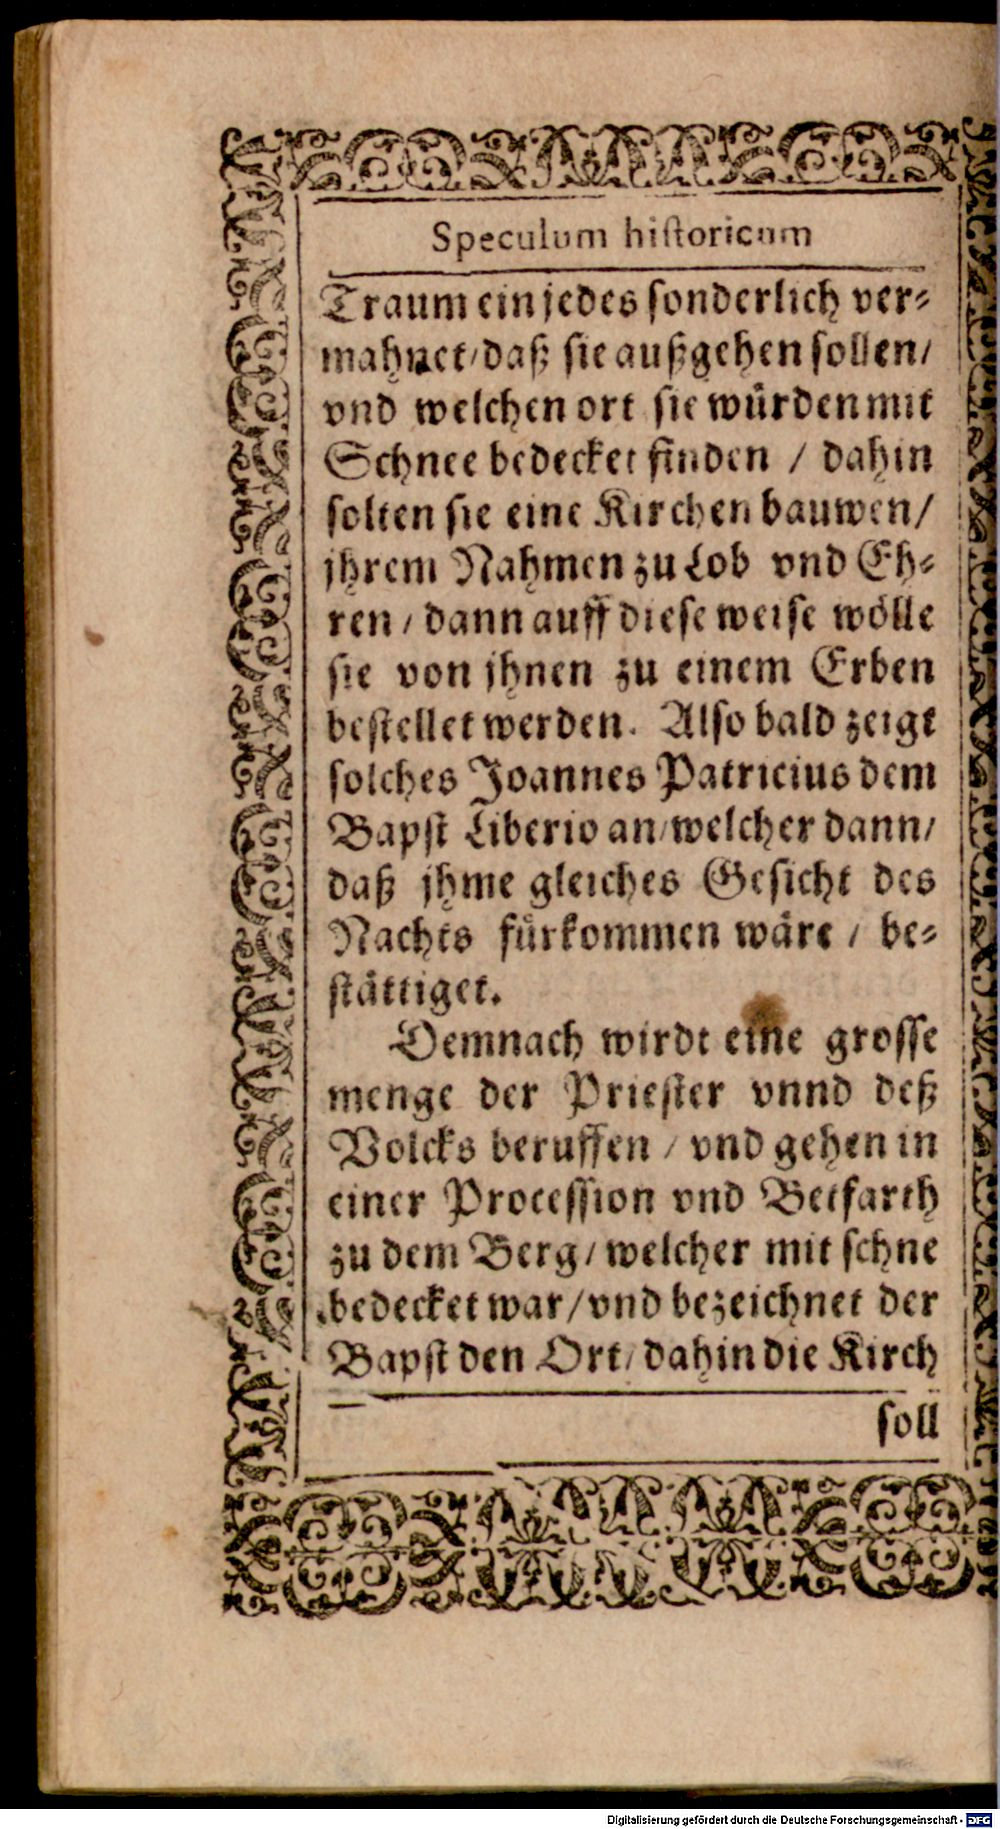 Speculum historicum
Traum ein jedes sonderlich ver⸗
mahnet/daß sie außgehen sollen/
vnd welchen ort sie würden mit
Schnee bedecket finden / dahin
solten sie eine Kirchen bauwen/
jhrem Nahmen zu Lob vnd Eh⸗
ren / dann auff diese weise wölle
sie von jhnen zu einem Erben
bestellet werden. Also bald zeigt
solches Joannes Patricius dem
Bapst Liberio an/welcher dann/
daß jhme gleiches Gesicht des
Nachts fürkommen wäre / be⸗
stättiget.
Demnach wirdt eine grosse
menge der Priester vnnd deß
Volcks beruffen / vnd gehen in
einer Procession vnd Betfarth
zu dem Berg/ welcher mit schne
bedecket war/vnd bezeichnet der
Bapst den Ort/ dahin die Kirch
soll
Digitalisierung gefördert durch die Deutsche Forschungsgemeinschaft - DFG